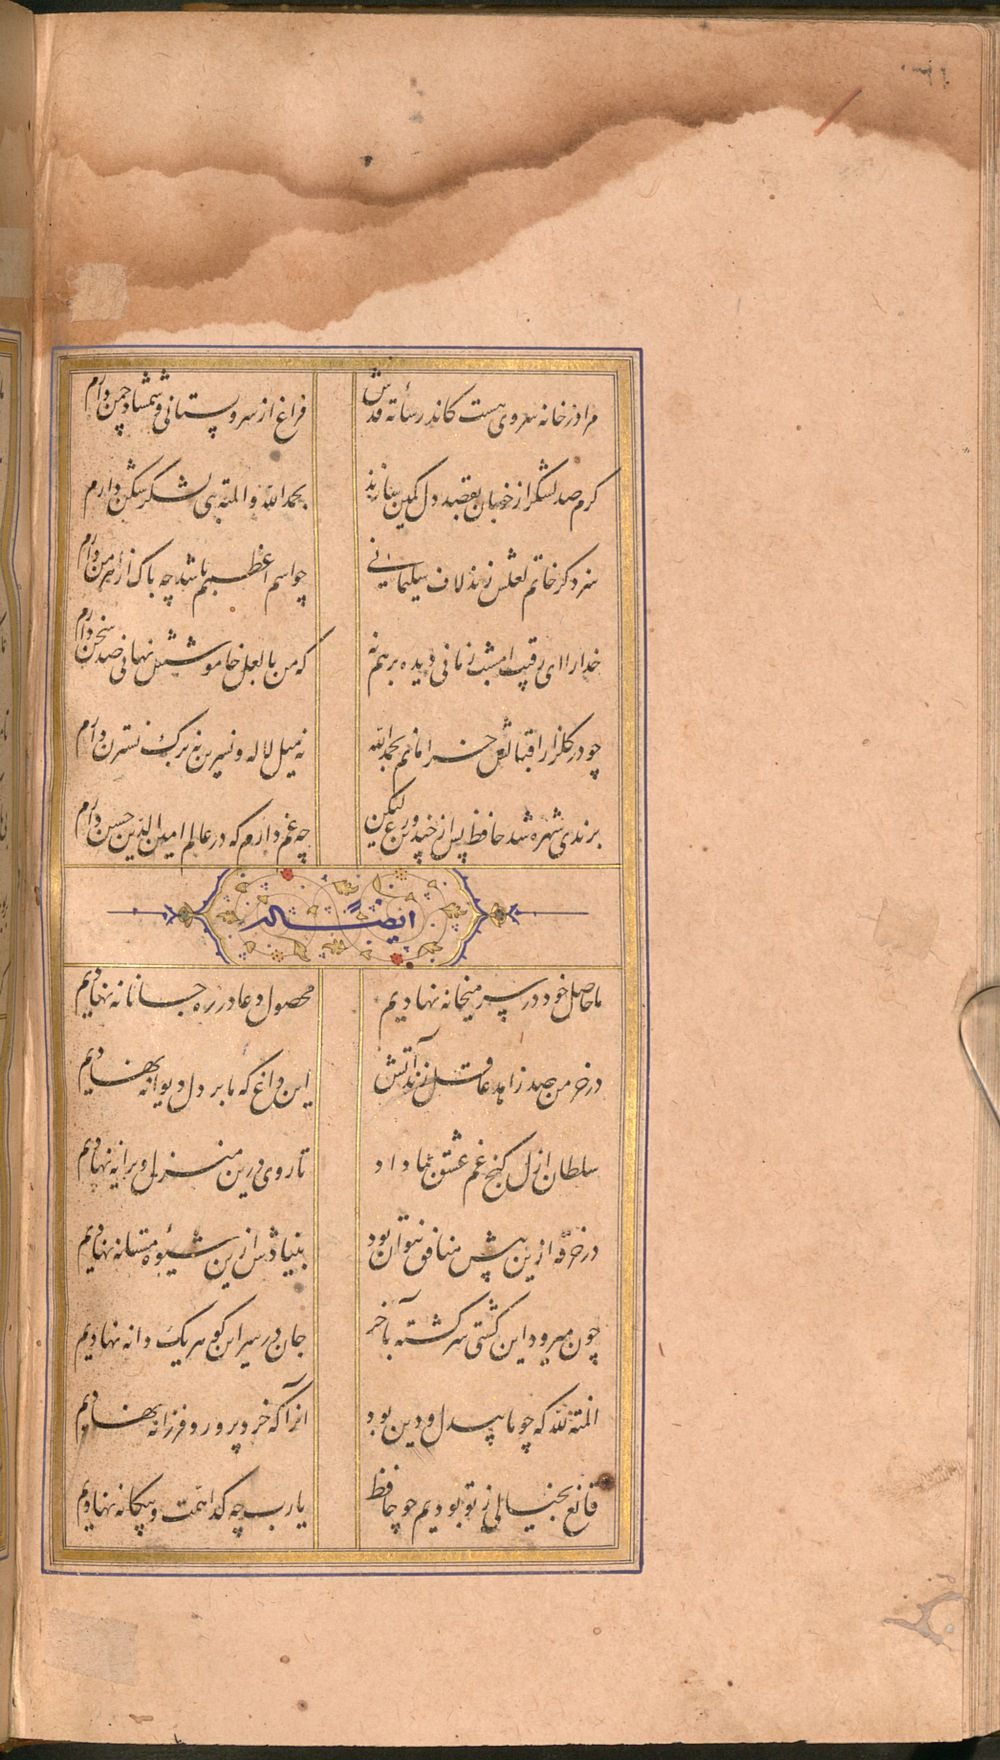 مرا در خانه سروی هست کاندر سایهٔ قدش فراغ از سرو بستانی و شمشاد چمن دارم
کرم صد لشکر از خوبان بقصد دل کمین سازند بحمدالله والمنه بتی لشکر شکن دارم
سزد کر خاتم لعلش زنم لاف سلیمانی چو اسم اعظمم باشد چه باک از اهرمن دارم
خدارا ای رقیب امشب زمانی دیده بر هم نه که من با لعل خاموشش نهانی صد سخن دارم
چو در کلزار اقبالش خرامانم بحمدالله نه میل لاله و نسرین نه برک نسترن دارم
برندی شهره شد حافظ پس از چندین ورع لیکن چه غم دارم که در عالم امین الدین حسن دارم
ایضاً له
ما حاصل خود در سر میخانه نهادیم محصول دعا در ره جانانه نهادیم
در خرمن صد زاهد عاقل زند آتش این داغ که ما بر دل دیوانه نهادیم
سلطان ازل کنج غم عشق بما داد تا روی درین منزل ویرانه نهادیم
در خرقه ازین پیش منافق نتوان بود بنیادش ازین شیوهٔ مستانه نهادیم
چون میرود این کشتی سرکشته بآخر جان در سر این کوهر یکدانه نهادیم
المنة لله که چو ما بیدل و دین بود آنرا که خرد پرور و فرزانه نهادیم
قانع بخیالی ز تو بودیم چو حافظ یارب چه کدا همت و بیکانه نهادیم